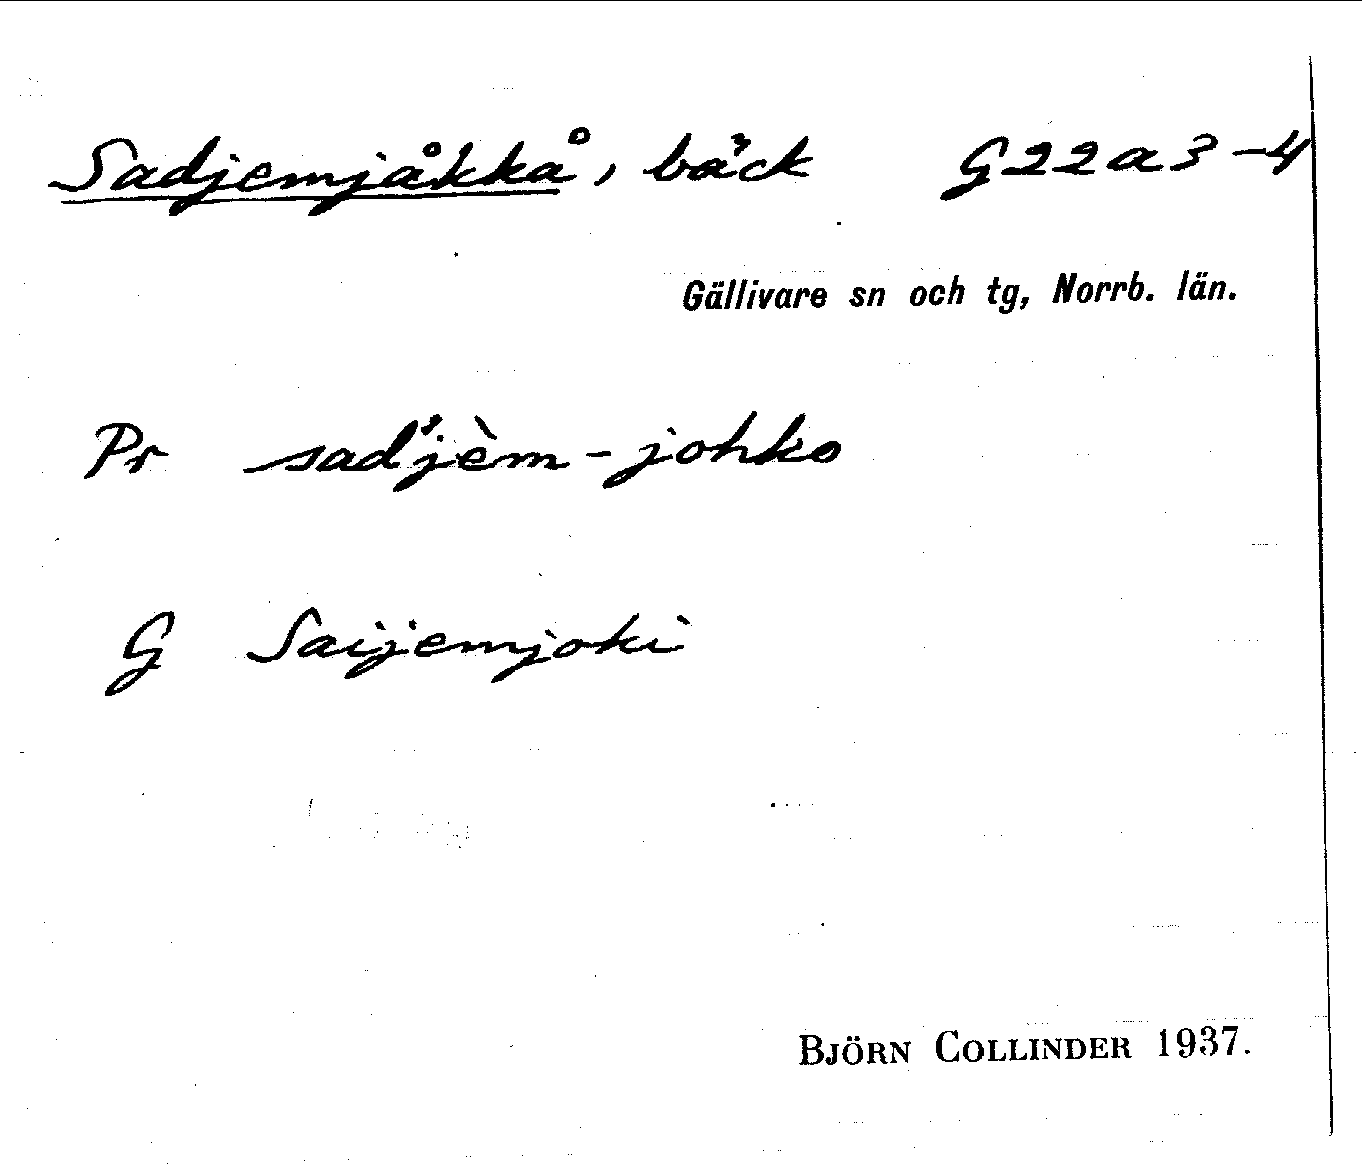 Sadjemjåkkå, bäck G22a3-4
Gällivare sn och tg, Norrb. län.
Pr sad'jèm-johko
G Saijemjoki
BJÖRN COLLINDER 1937.